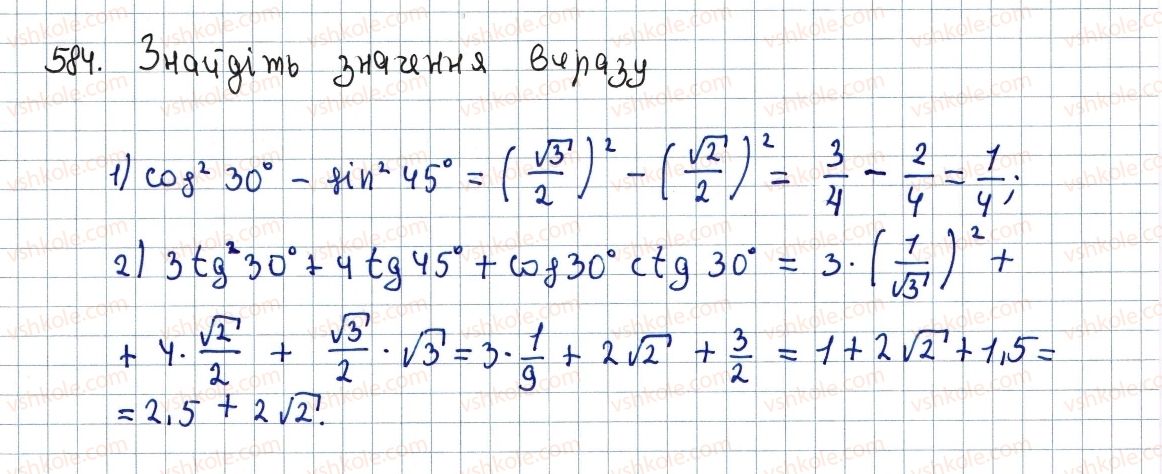 584. Знайдіть значення виразу
1) cos² 30° − sin² 45° = (√3/2)² − (√2/2)² = 3/4 − 2/4 = 1/4;
2) 3 tg² 30° + 4 tg 45° + cos 30° ctg 30° = 3 · (1/√3)² +
+ 4 · √2/2 + √3/2 · √3 = 3 · 1/9 + 2√2 + 3/2 = 1 + 2√2 + 1,5 =
= 2,5 + 2√2.